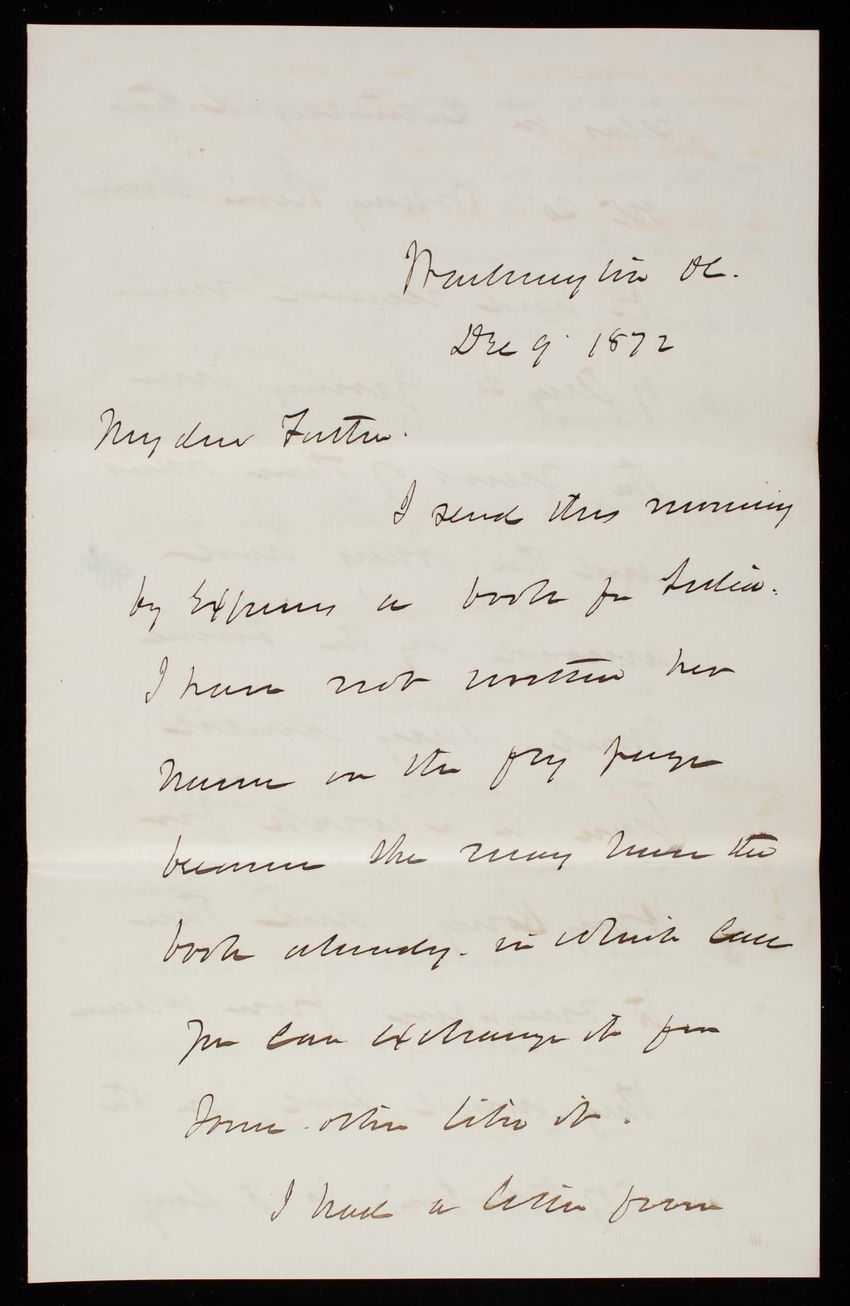 Washington DC.
Dec 9 1872
My dear Father.
I send this morning
by Express a book for Julia.
I have not written her
name on the fly page
because she may have the
book already. in which case
you can exchange it for
some other like it.
I had a letter from